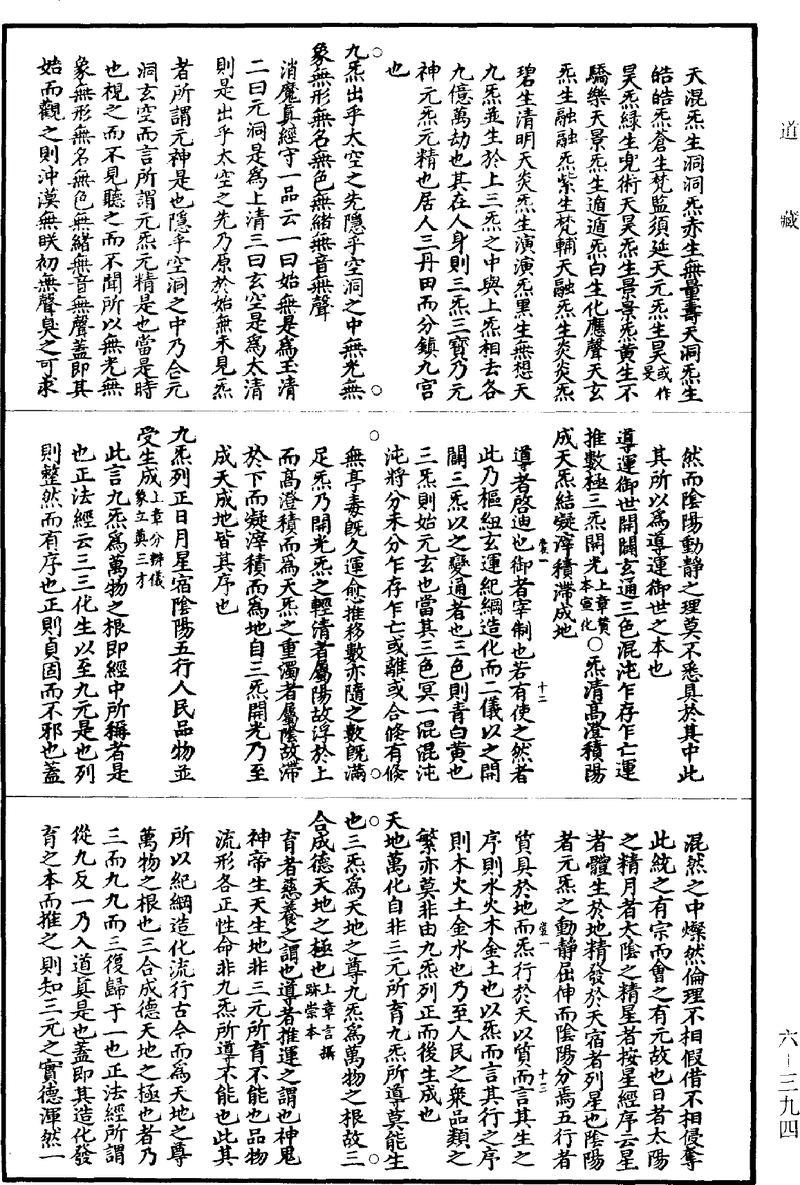 道藏
天混炁生洞洞炁赤生無量壽天洞炁生
皓皓炁蒼生梵監須延天元炁生昊或作旻
昊炁綠生兜術天昊炁生景景炁黄生不
驕樂天景炁生遁遁炁白生化應聲天玄
炁生融融炁紫生梵輔天融炁生炎炎炁
碧生清明天炎炁生演演炁黑生無想天
九炁並生於上三炁之中與上炁相去各
九億萬劫也其在人身則三炁三寶乃元
神元炁元精也居人三丹田而分鎮九宮
也
九炁出乎太空之先隱乎空洞之中無光無
象無形無名無色無緒無音無聲
消魔真經守一品云一曰始無是爲玉清
二曰元洞是爲上清三曰玄空是爲太清
則是出乎太空之先乃原於始無未見炁
者所謂元神是也隱乎空洞之中乃合元
洞玄空而言所謂元炁元精是也當是時
也視之而不見聽之而不聞所以無光無
象無形無名無色無緒無音無聲蓋即其
始而觀之則沖漠無眹初無聲臭之可求
然而陰陽動靜之理莫不悉具於其中此
其所以爲導運御世之本也
導運御世開闢玄通三色混沌乍存乍亡運
推數極三炁開光上章贊本宣化○炁清高澄積陽
成天炁結凝滓積滯成地
導者啓迪也御者宰制也若有使之然者
此乃樞紐玄運紀綱造化而二儀以之開
闢三炁以之變通者也三色則青白黄也
三炁則始元玄也當其三色冥一混混沌
沌將分未分乍存乍亡或離或合倐有倐
無亭毒旣久運愈推移數亦隨之數旣滿
足炁乃開光炁之輕清者屬陽故浮於上
而高澄積而爲天炁之重濁者屬陰故滯
於下而凝滓積而爲地自三炁開光乃至
成天成地皆其序也
九炁列正日月星宿陰陽五行人民品物並
受生成上章分辨儀象立奠三才
此言九炁爲萬物之根即經中所稱者是
也正法經云三三化生以至九元是也列
則整然而有序也正則貞固而不邪也蓋
混然之中燦然倫理不相假借不相侵奪
此統之有宗而會之有元故也日者太陽
之精月者太陰之精星者按星經序云星
者體生於地精發於天宿者列星也陰陽
者元炁之動靜屈伸而陰陽分焉五行者
質具於地而炁行於天以質而言其生之
序則水火木金土也以炁而言其行之序
則木火土金水也乃至人民之衆品類之
繁亦莫非由九炁列正而後生成也
天地萬化自非三元所育九炁所導莫能生
也三炁爲天地之尊九炁爲萬物之根故三
合成德天地之極也上章言攝跡崇本
育者慈養之謂也導者推運之謂也神鬼
神帝生天生地非三元所育不能也品物
流形各正性命非九炁所導不能也此其
所以紀綱造化流行古今而爲天地之尊
萬物之根也三合成德天地之極也者乃
三而九九而三復歸于一也正法經所謂
從九反一乃入道真是也蓋即其造化發
育之本而推之則知三元之實德渾然一
六－三九四